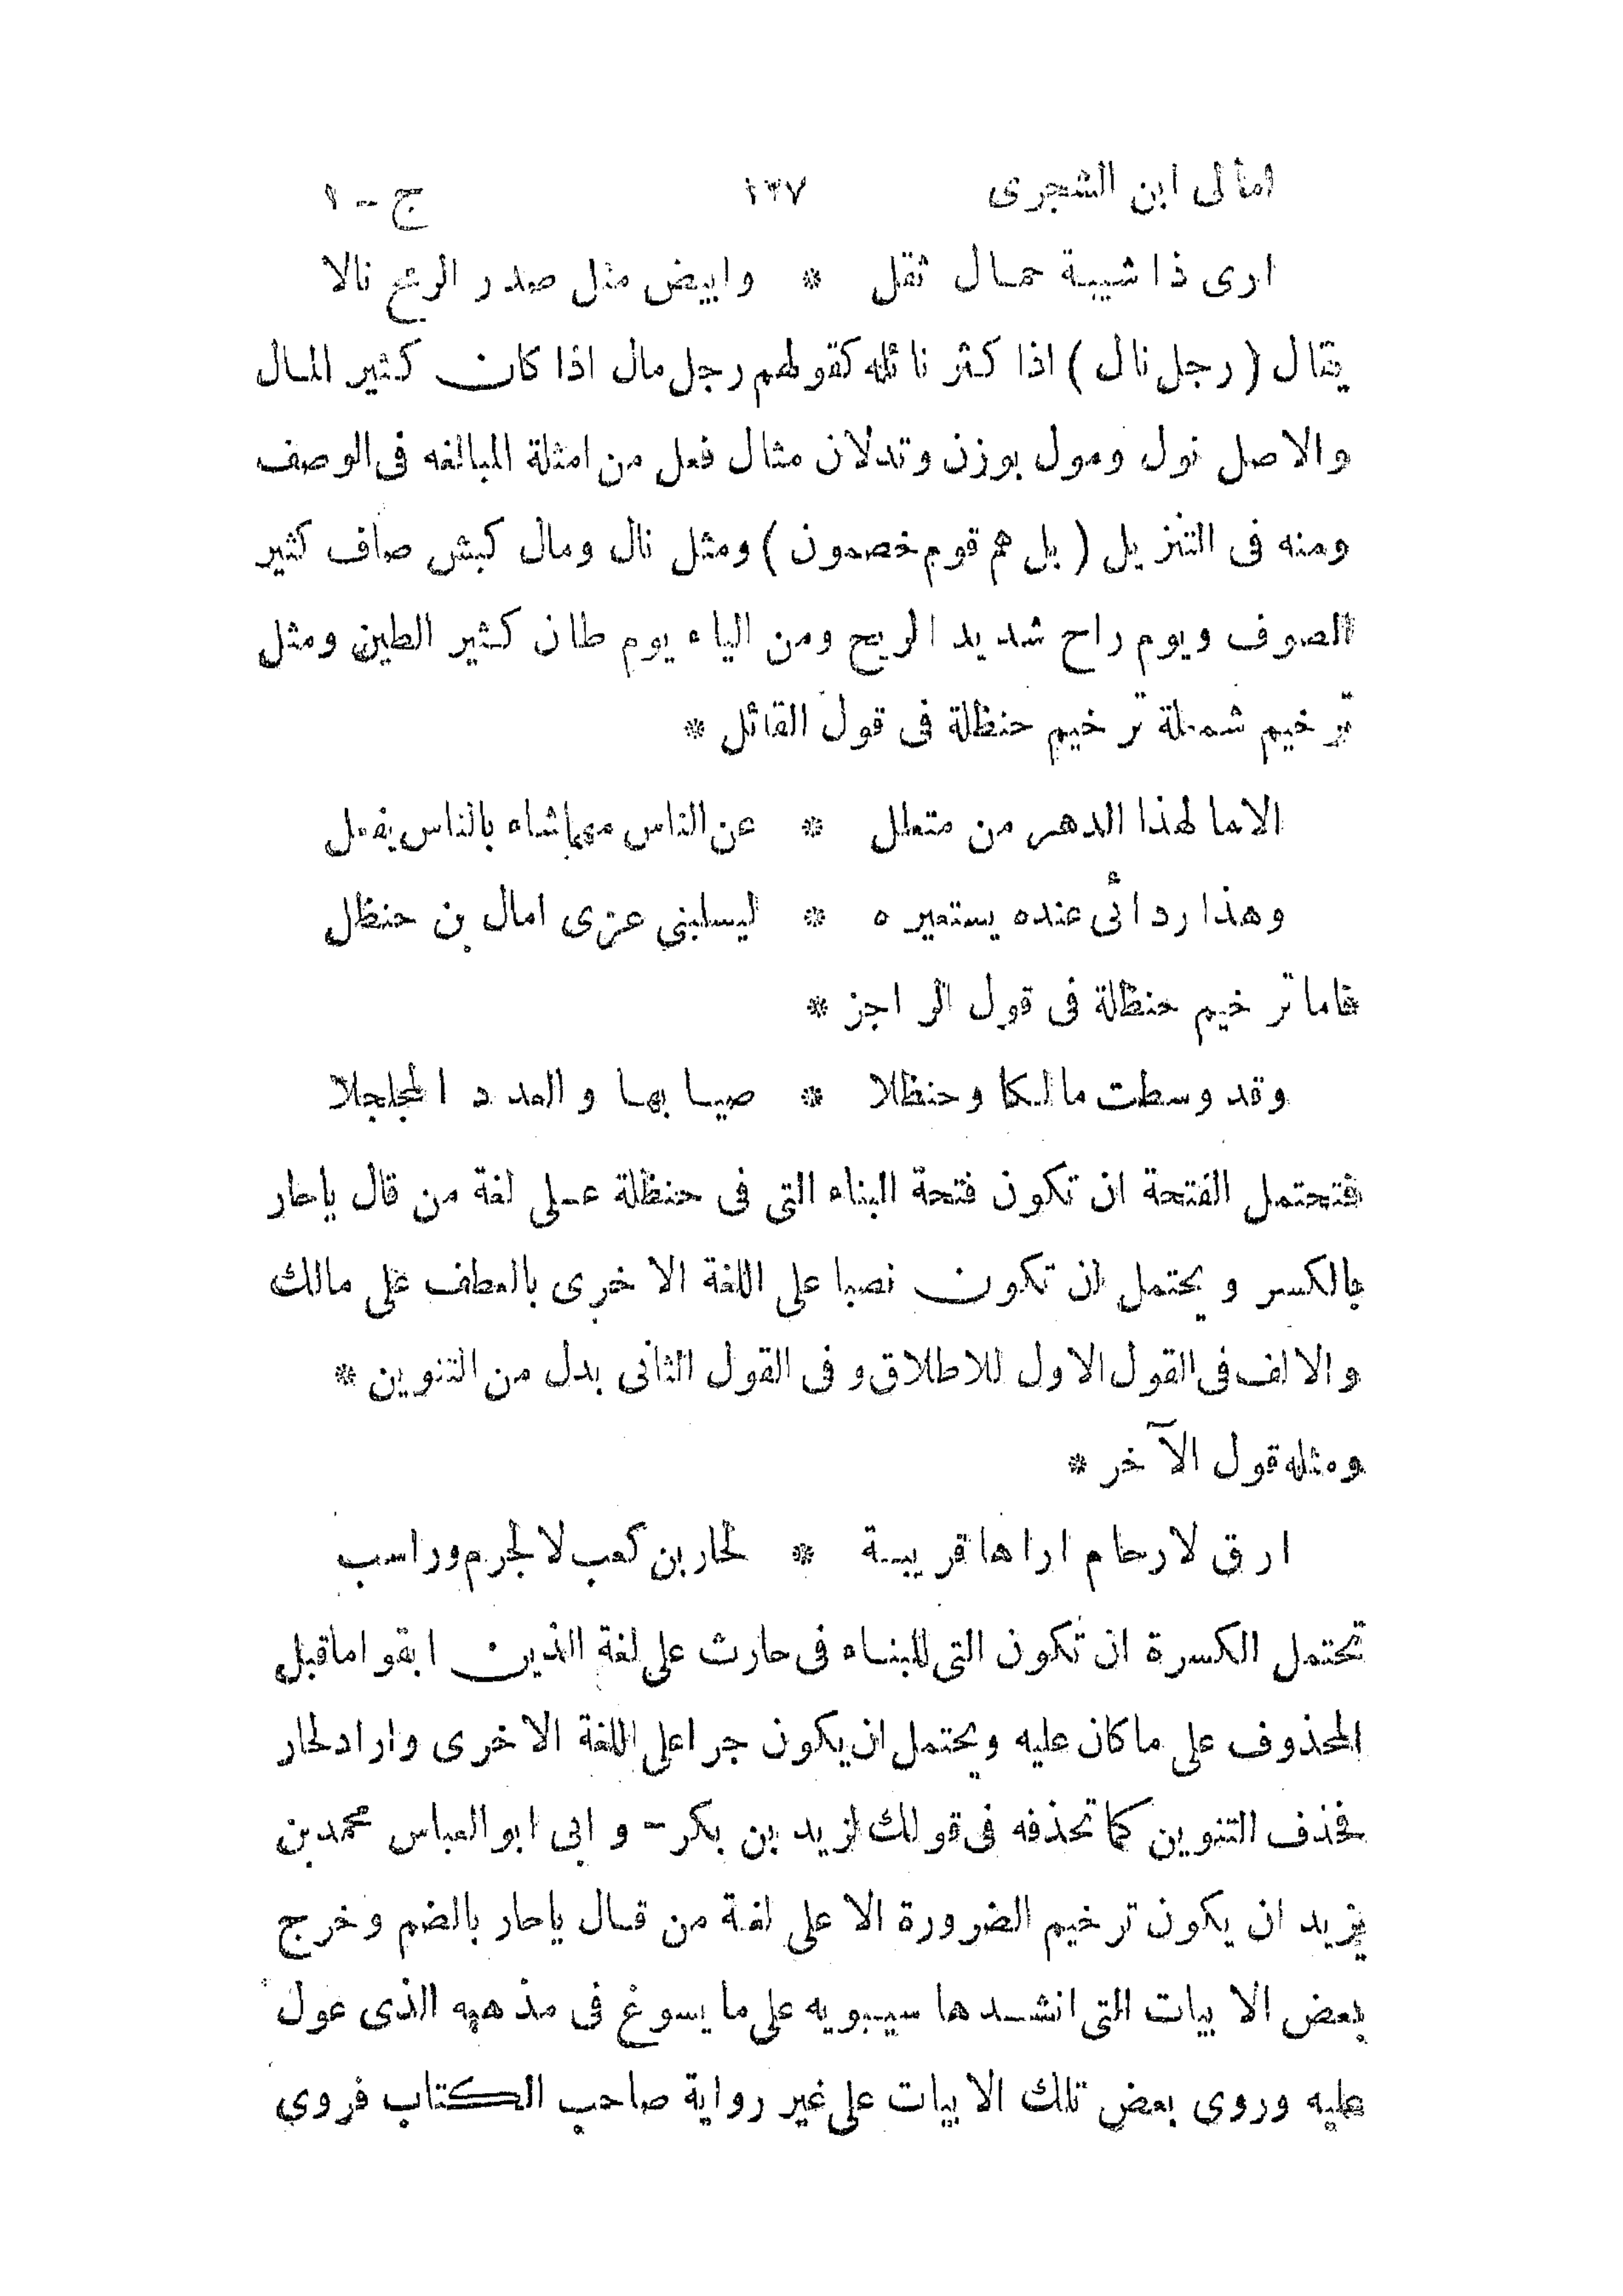 امالى ابن الشجرى ١٢٧ ج - ١
ارى ذا شيبة حمال ثقل * وابيض مثل صدر الرمح نالا
يقال (رجل نال) اذا كثر نائله كقولهم رجل مال اذا كان كثير المال
والاصل نول ومول بوزن وتدلان مثال فعل من امثلة المبالغه فى الوصف
ومنه فى التنزيل (بل هم قوم خصمون) ومثل نال ومال كبش صاف كثير
الصوف ويوم راح شديد الريح ومن الياء يوم طان كثير الطين ومثل
ترخيم شملة ترخيم حنظلة فى قول القائل *
الاما لهذا الدهر من متعلل * عن الناس مهما شاء بالناس يفعل
وهذا ردائى عنده يستعيره * ليسلبنى عزى امال بن حنظل
فاما ترخيم حنظلة فى قول الراجز *
وقد وسطت مالكا وحنظلا * صيابها والعدد المجلجلا
فتحتمل الفتحة ان تكون فتحة البناء التى فى حنظلة على لغة من قال ياحار
بالكسر ويحتمل ان تكون نصبا على اللغة الاخرى بالعطف على مالك
والالف فى القول الاول للاطلاق وفى القول الثانى بدل من التنوين *
ومثله قول الآخر *
ارق لارحام اراها قريبة * لحار بن كعب لا لجرم وراسب
تحتمل الكسرة ان تكون التى للبناء فى حارث على لغة الذين ابقوا ماقبل
المحذوف على ماكان عليه ويحتمل ان يكون جرا على اللغة الاخرى واراد لحار
فحذف التنوين كما تحذفه فى قولك لزيد بن بكر - وابى ابو العباس محمد بن
يزيد ان يكون ترخيم الضرورة الا على لغة من قال ياحار بالضم وخرج
بعض الابيات التى انشدها سيبويه على ما يسوغ فى مذهبه الذى عول
عليه وروى بعض تلك الابيات على غير رواية صاحب الكتاب فروى